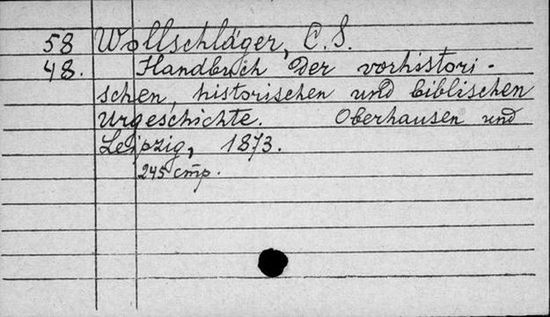 58 Wollschläger, C. S.
48. Handbuch der vorhistori-
schen, historischen und biblischen
Urgeschichte. Oberhausen und
Leipzig, 1873.
245 стр.